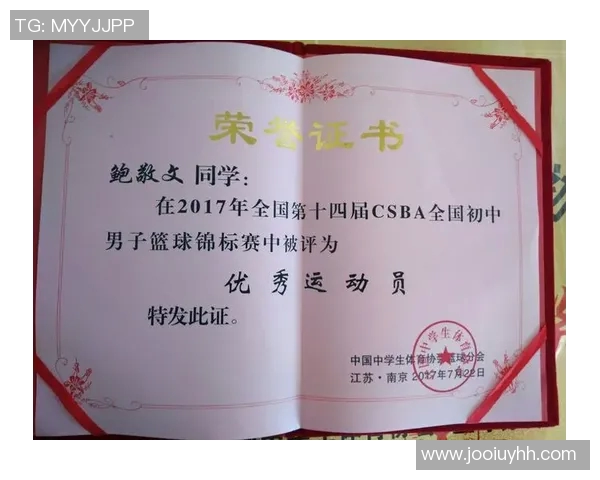 TG: MYYJJPP
荣誉证书
鲍敬文 同学：
在2017年全国第十四届CSBA全国初中
男子篮球锦标赛中被评为
优秀运动员
特发此证。
中国中学生体育协会篮球分会
江苏·南京 2017年7月22日
www.jooiuyhh.com